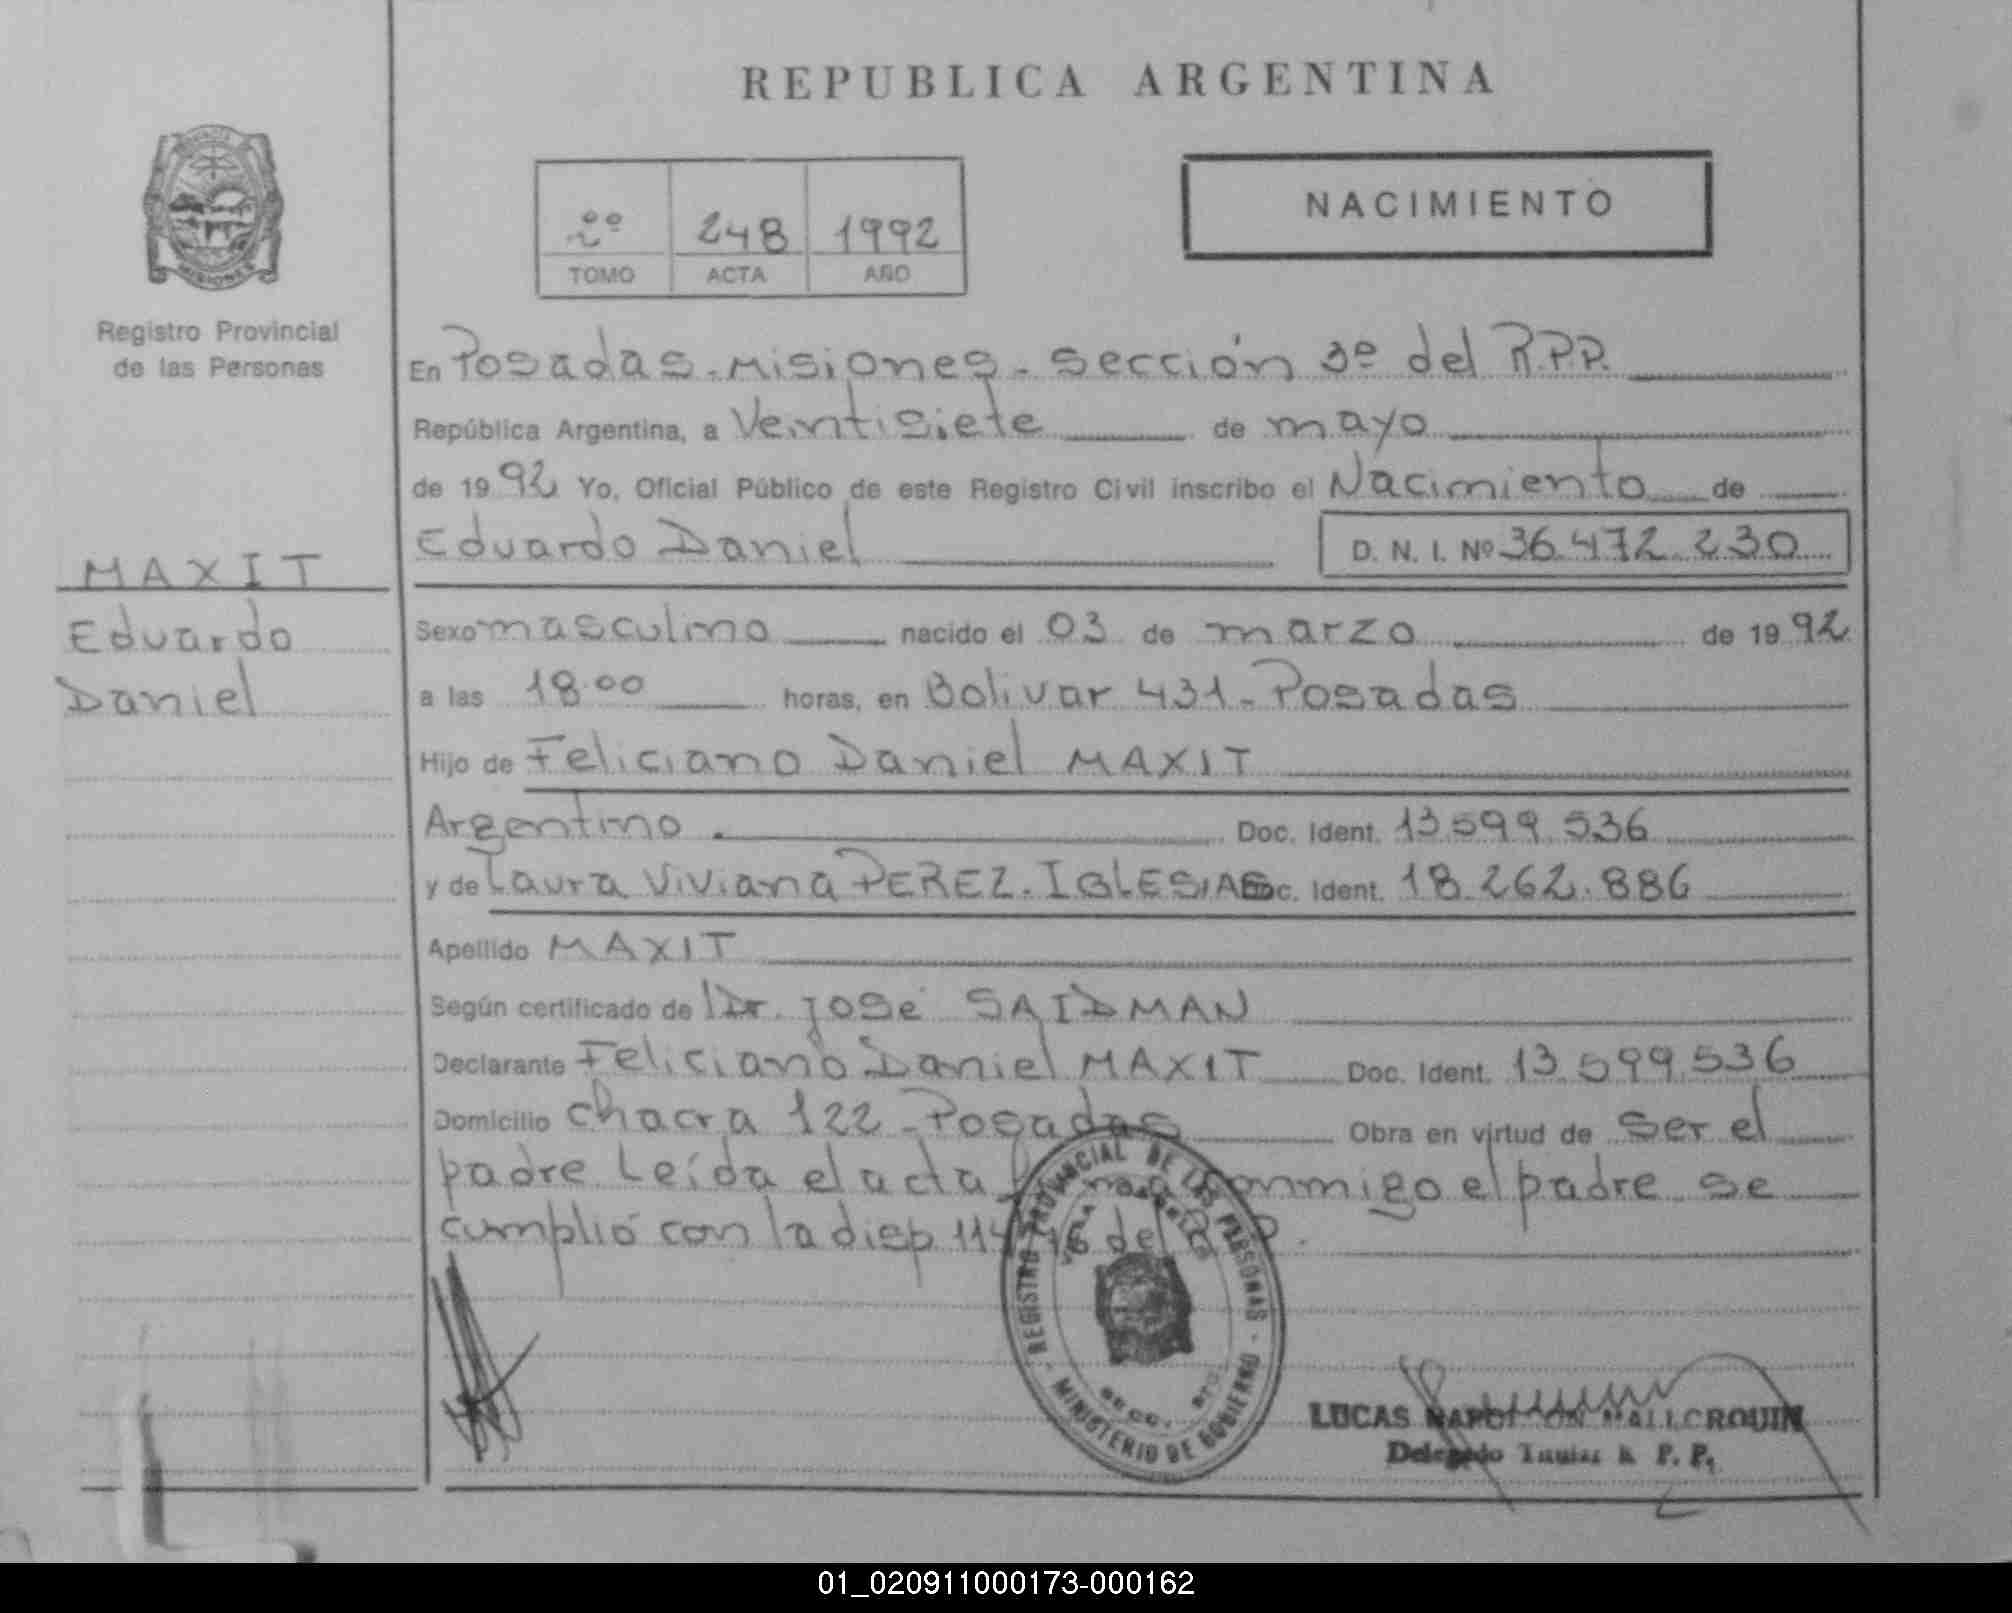 REPUBLICA ARGENTINA
NACIMIENTO
248 1992
TOMO ACTA AÑO
MISIONES
Registro Provincial
de las Personas
En Posadas - Misiones - Sección 3º del R.P.P.
República Argentina, a Veintisiete de mayo
de 1992 Yo, Oficial Público de este Registro Civil inscribo el Nacimiento de
Eduardo Daniel D. N. I. Nº 36.472.230
MAXIT
Eduardo
Daniel
Sexo masculino nacido el 03 de marzo de 1992
a las 18.00 horas, en Bolivar 431 - Posadas
Hijo de Feliciano Daniel MAXIT
Argentino . Doc. Ident. 13.599.536
y de Laura Viviana PEREZ. IGLESIAS Doc. Ident. 18.262.886
Apellido MAXIT
Según certificado de Dr. José SAIDMAN
Declarante Feliciano Daniel MAXIT Doc. Ident. 13.599.536
Domicilio Chacra 122 - Posadas Obra en virtud de ser el
padre Leída el acta conmigo el padre se
cumplió con la disp 114 del R.P.P.
REGISTRO PROVINCIAL DE LAS PERSONAS
MINISTERIO DE GOBIERNO
LUCAS NAPOLEON MALLORQUIN
Delegado Titular R. P. P.
01_020911000173-000162